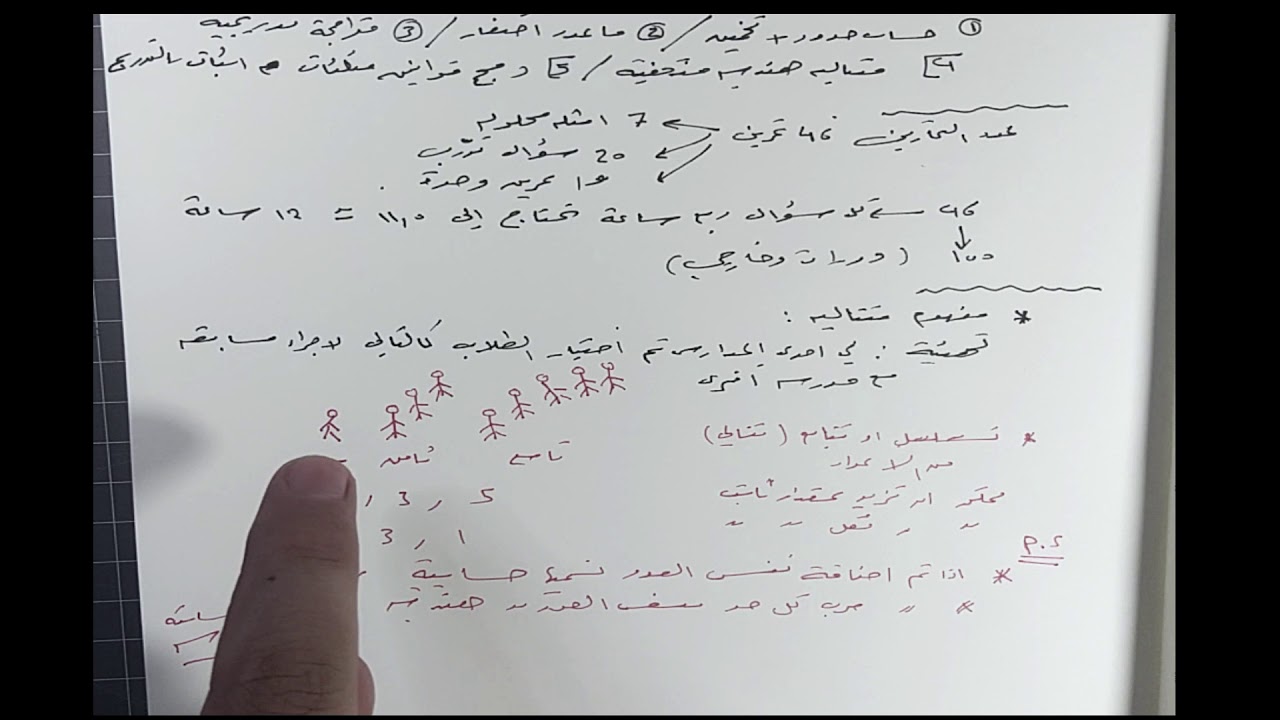 ① حساب حدود + تخمين / ② ما عدد أصفار / ③ متراجحة تدريجية
4] متتاليه هندسيه متخفية / 5] دمج قوانين مثلثات مع اثبات بالتدريج
عدد التمارين 46 تمرين
7 امثله محلوله
20 سؤال تدرّب
19 تمرين وحدة .
46 سؤال ربع ساعة تحتاج إلى 11,5 ≈ 12 ساعة
100 (دورات وخارجي)
* مفهوم متتاليه :
تهيئة : في احدى المدارس تم اختيار الطلاب كالتالي لاجراء مسابقه
مع مدرسه اخرى
تاسع ثامن
* تسلسل او تتابع (تتالي)
من الاعداد
5 , 3 ,
ممكن ان تزيد بمقدار ثابت
" " , تقل " "
1 , 3
م.ح
* اذا تم اضافة نفس العدد نسميها حسابية
* " ضرب كل حد بنفس العدد " هندسية